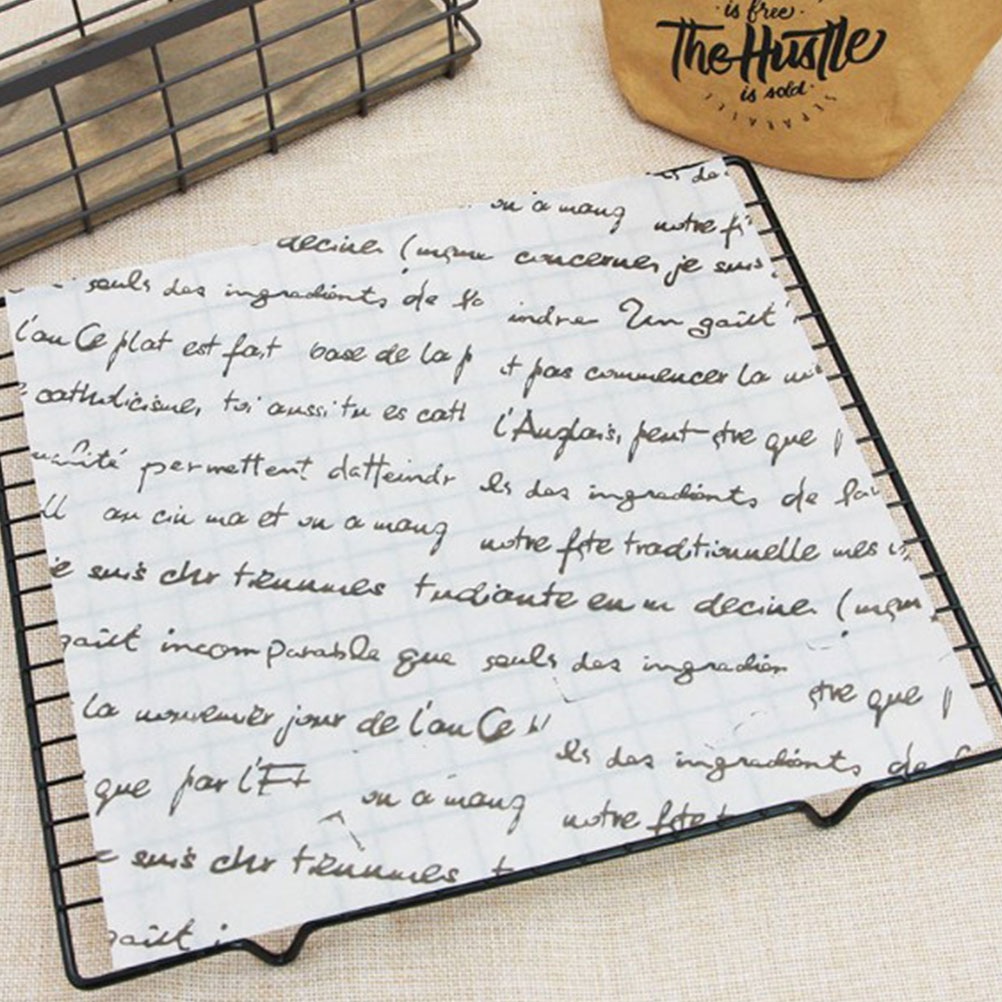 is free
The Hustle
is sold
SEPARATE
de
on a mang notre fi
decine (meme concerner je suis
seuls des ingredients de la indre Un gaiet
l'an Ce plat est fait base de la p t pas commencer la
catholicisme, toi aussi tu es cath l'Anglais, peut-etre que
permettent datteindr ls des ingredients de la
au cin ma et on a mang notre fete traditionnelle mes
e suis chr tiennes tudiante en m decine (meme
gaiet incomparable que seuls des ingredien
la nouvenier jour de l'an Ce etre que
que par l'Et ls des ingredients de
on a mang notre fete t
e suis chr tiennes t
gaiet i